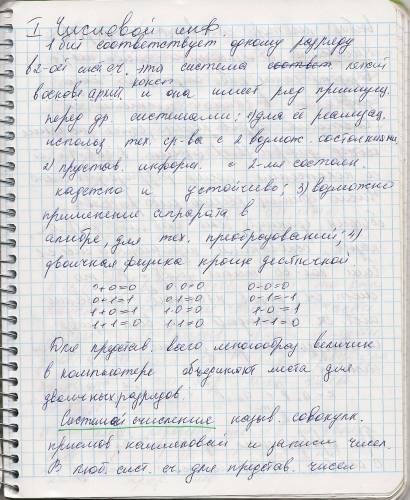 I Числовой инф.
1 бит соответствует одному разряду
в 2-ой сист. сч. эта система лежит
в основе архит. комп. и она имеет ряд преимущ.
перед др системами: 1) для её реализац.
использ тех. ср-ва с 2 возмож. состояниями
2) представ. информ. с 2-мя состоян.
надежно и устойчиво; 3) возможно
применение аппарата в
алгебре, для тех. преобразований; 4)
двоичная физика проще десятичной
0+0=0 0·0=0 0-0=0
0+1=1 0·1=0 0-1=-1
1+0=1 1·0=0 1-0=1
1+1=0 1·1=0 1-1=0
Для представ. всего многообраз. величин
в компьютере объединяют места для
двоичных разрядов.
Системой счисления назыв. совокупн.
приемов, наименований и записи чисел.
В люб. сист. сч. для представ. чисел